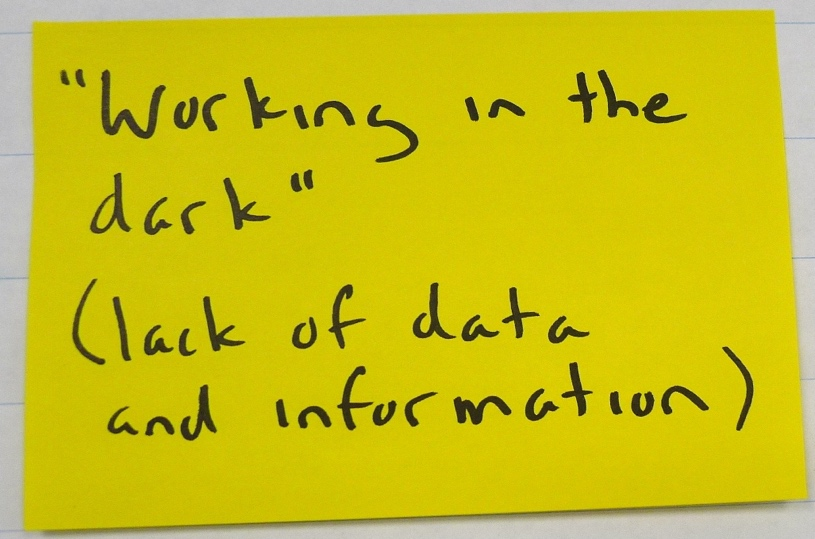 "Working in the
dark"
(lack of data
and information)